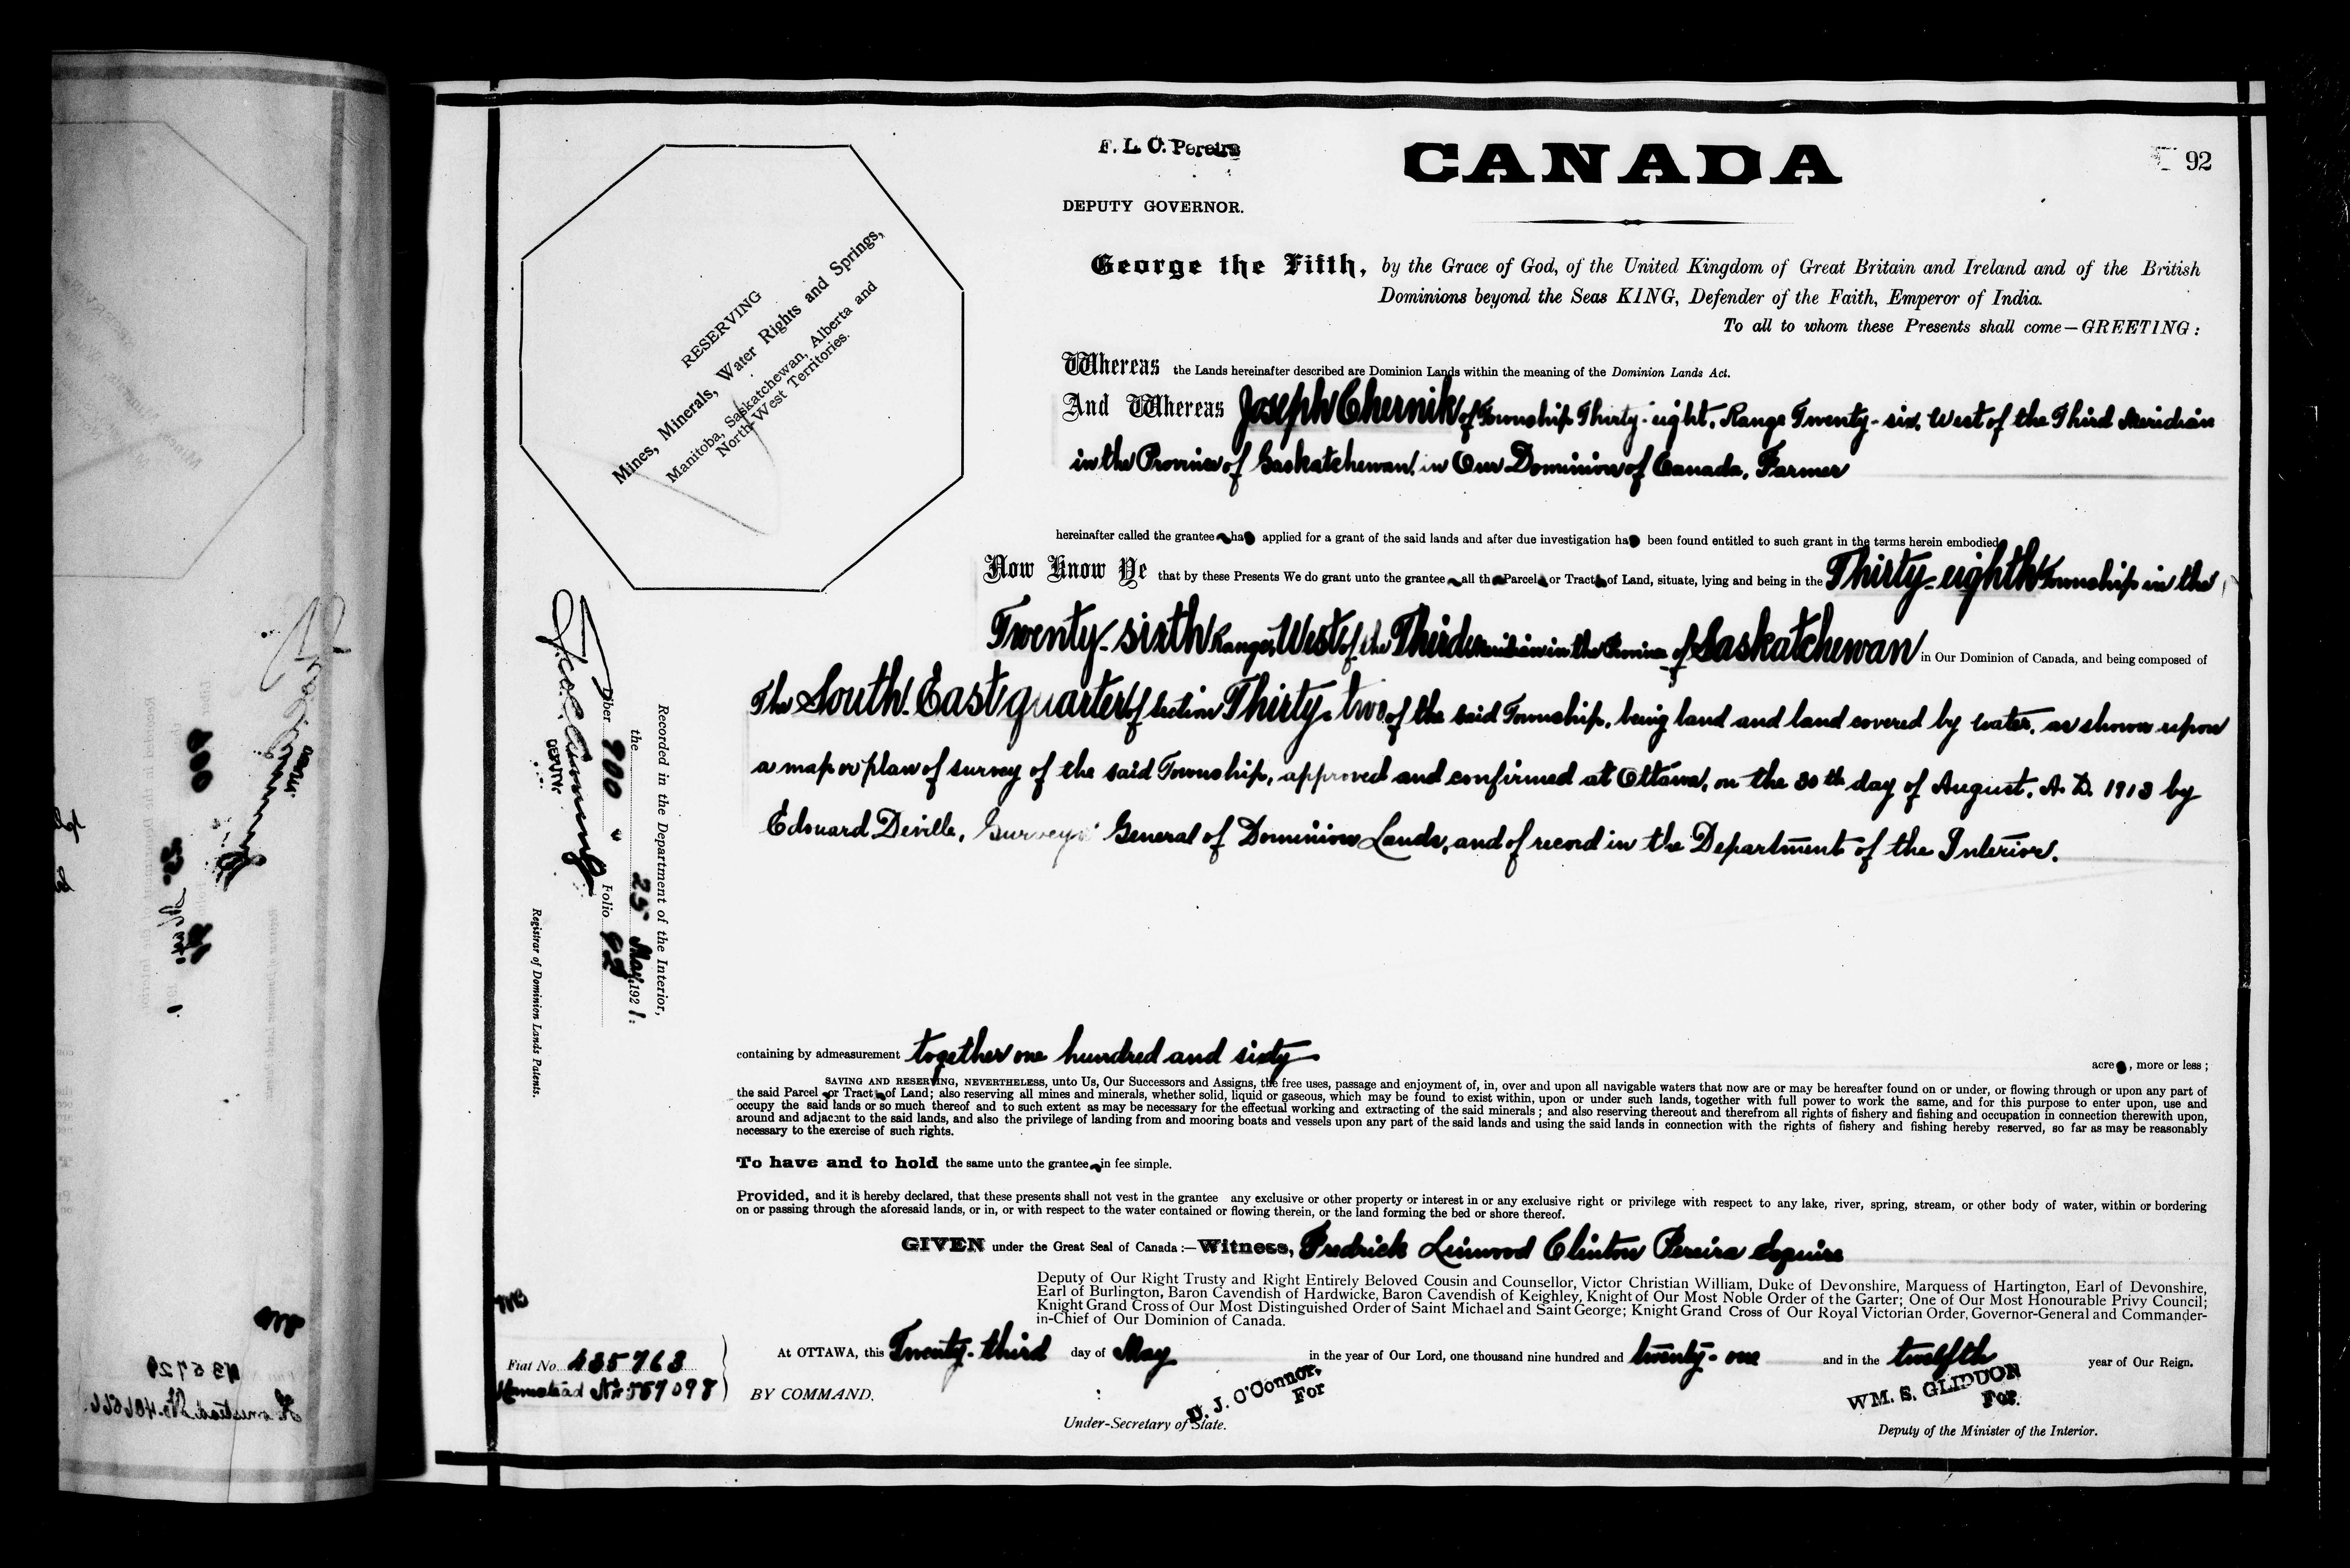 F. L. C. Pereira
DEPUTY GOVERNOR.
CANADA
92
RESERVING
Mines, Minerals, Water Rights and Springs,
Manitoba, Saskatchewan, Alberta and
North-West Territories.
George the Fifth, by the Grace of God, of the United Kingdom of Great Britain and Ireland and of the British
Dominions beyond the Seas KING, Defender of the Faith, Emperor of India.
To all to whom these Presents shall come—GREETING:
Whereas the Lands hereinafter described are Dominion Lands within the meaning of the Dominion Lands Act.
And Whereas Joseph Chernik of Township Thirty-eight, Range Twenty-six, West of the Third Meridian
in the Province of Saskatchewan, in Our Dominion of Canada, Farmer
hereinafter called the grantee has applied for a grant of the said lands and after due investigation has been found entitled to such grant in the terms herein embodied
Now Know Ye that by these Presents We do grant unto the grantee all the Parcel or Tract of Land, situate, lying and being in the Thirty-eighth Township in the
Twenty-sixth Range, West of the Third Meridian in the Province of Saskatchewan in Our Dominion of Canada, and being composed of
The South East quarter of Section Thirty-two of the said Township, being land and land covered by water, as shown upon
a map or plan of survey of the said Township, approved and confirmed at Ottawa, on the 30th day of August, A.D. 1913 by
Edouard Deville, Surveyor General of Dominion Lands, and of record in the Department of the Interior.
Recorded in the Department of the Interior,
the 25 May 1921.
Liber 900 Folio 92
DEPUTY
Registrar of Dominion Lands Patents.
containing by admeasurement together one hundred and sixty acres, more or less;
SAVING AND RESERVING, NEVERTHELESS, unto Us, Our Successors and Assigns, the free uses, passage and enjoyment of, in, over and upon all navigable waters that now are or may be hereafter found on or under, or flowing through or upon any part of
the said Parcel or Tract of Land; also reserving all mines and minerals, whether solid, liquid or gaseous, which may be found to exist within, upon or under such lands, together with full power to work the same, and for this purpose to enter upon, use and
occupy the said lands or so much thereof and to such extent as may be necessary for the effectual working and extracting of the said minerals; and also reserving thereout and therefrom all rights of fishery and fishing and occupation in connection therewith upon,
around and adjacent to the said lands, and also the privilege of landing from and mooring boats and vessels upon any part of the said lands and using the said lands in connection with the rights of fishery and fishing hereby reserved, so far as may be reasonably
necessary to the exercise of such rights.
To have and to hold the same unto the grantee in fee simple.
Provided, and it is hereby declared, that these presents shall not vest in the grantee any exclusive or other property or interest in or any exclusive right or privilege with respect to any lake, river, spring, stream, or other body of water, within or bordering
on or passing through the aforesaid lands, or in, or with respect to the water contained or flowing therein, or the land forming the bed or shore thereof.
GIVEN under the Great Seal of Canada:—Witness, Fredrick Linwood Clinton Pereira Esquire
Deputy of Our Right Trusty and Right Entirely Beloved Cousin and Counsellor, Victor Christian William, Duke of Devonshire, Marquess of Hartington, Earl of Devonshire,
Earl of Burlington, Baron Cavendish of Hardwicke, Baron Cavendish of Keighley, Knight of Our Most Noble Order of the Garter; One of Our Most Honourable Privy Council;
Knight Grand Cross of Our Most Distinguished Order of Saint Michael and Saint George; Knight Grand Cross of Our Royal Victorian Order, Governor-General and Commander-
in-Chief of Our Dominion of Canada.
At OTTAWA, this Twenty-third day of May in the year of Our Lord, one thousand nine hundred and twenty-one and in the twelfth year of Our Reign.
Fiat No. 435763
Homestead No. 557098
BY COMMAND,
D. J. O'Connor,
For
Under-Secretary of State.
WM. S. GLIDDON
For
Deputy of the Minister of the Interior.